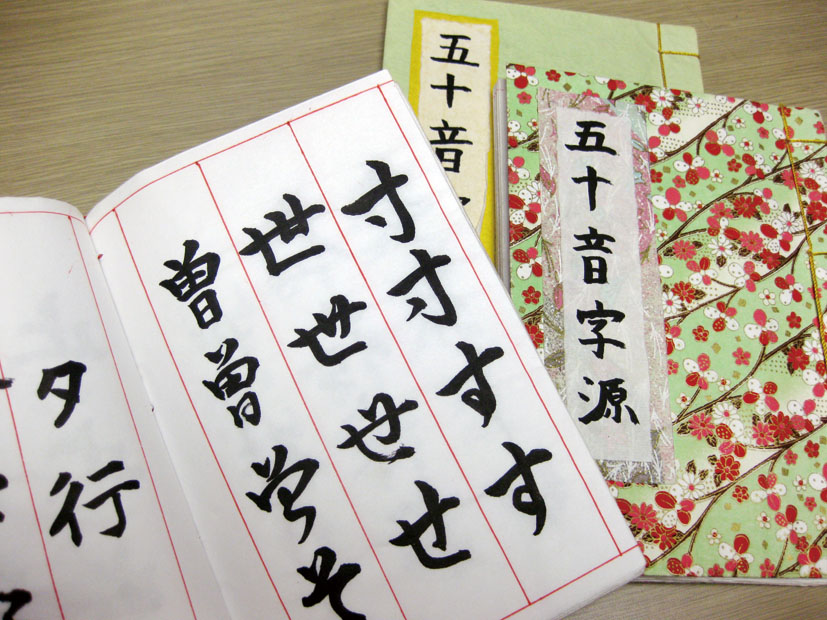 五十音字源
五十音
寸寸すす
世世せせ
曽曽そそ
タ行